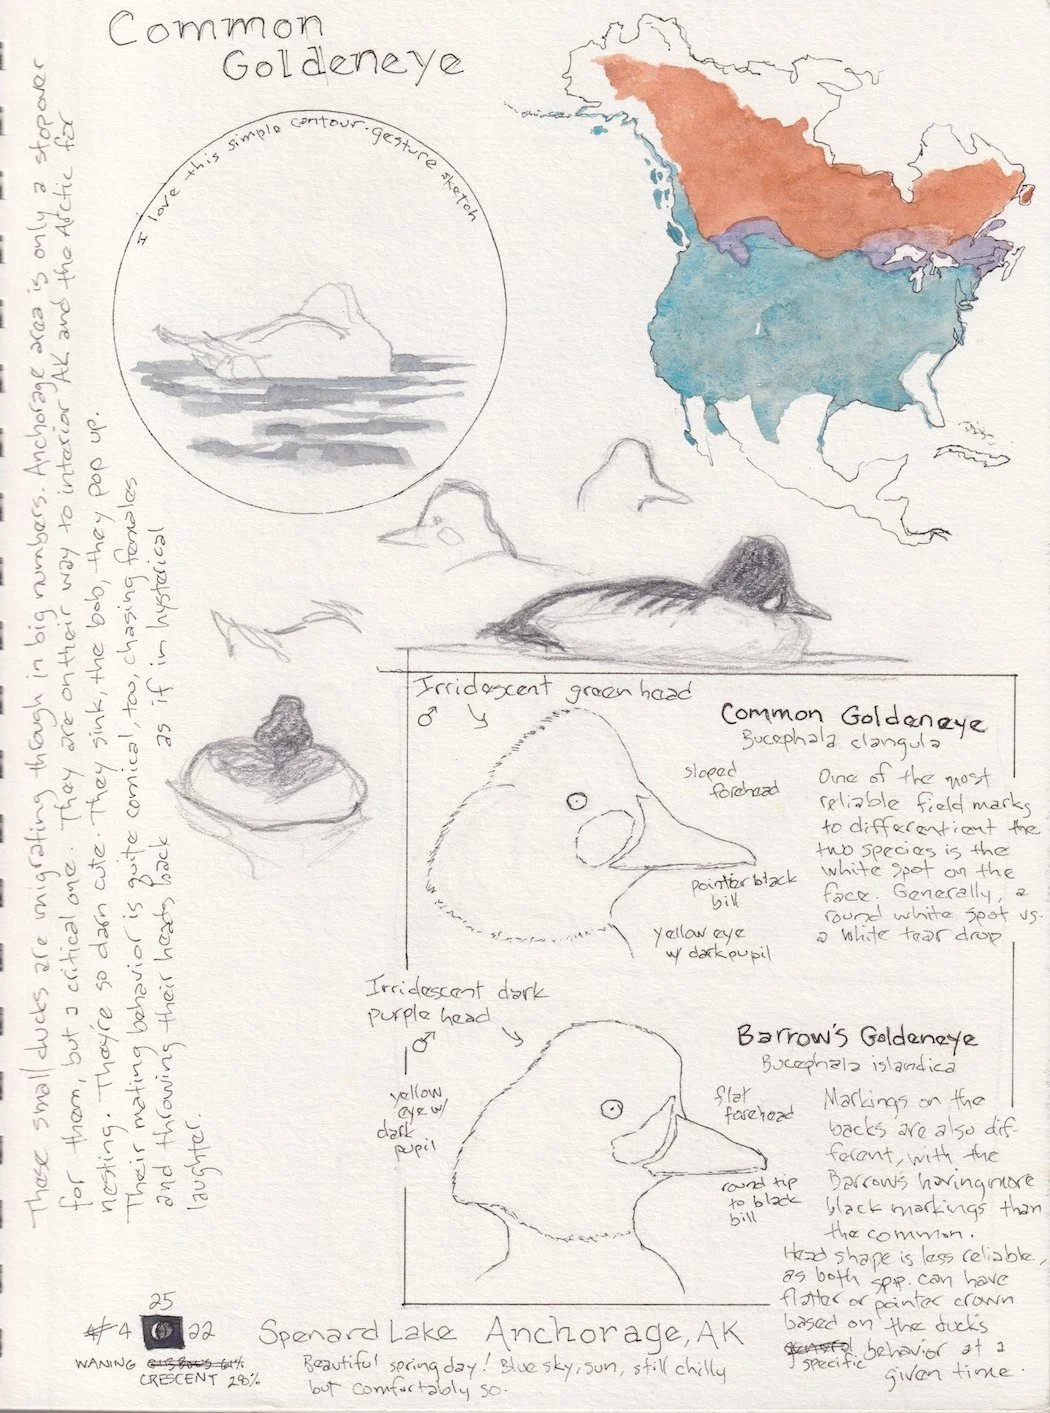 Common
Goldeneye
I love this simple contour-gesture sketch
These small ducks are migrating though in big numbers. Anchorage area is only a stopover
for them, but a critical one. They are on their way to interior AK and the Arctic for
nesting. They're so darn cute. They sink, the bob, they pop up.
Their mating behavior is quite comical, too, chasing females
and throwing their heads back as if in hysterical
laughter.
Irridescent green head
♂
Common Goldeneye
Bucephala clangula
sloped
forehead
pointier black
bill
yellow eye
w/ dark pupil
One of the most
reliable field marks
to differentient the
two species is the
white spot on the
face. Generally, a
round white spot vs.
a white tear drop
Irridescent dark
purple head
♂
yellow
eye w/
dark
pupil
Barrow's Goldeneye
Bucephala islandica
flat
forehead
round tip
to black
bill
Markings on the
backs are also dif-
ferent, with the
Barrow's having more
black markings than
the common.
Head shape is less reliable,
as both spp. can have
flatter or pointer crown
based on the ducks
general behavior at a
specific
given time.
25
4 22
WANING GIBBOUS 61%
CRESCENT 28%
Spenard Lake Anchorage, AK
Beautiful spring day! Blue sky, sun, still chilly
but comfortably so.